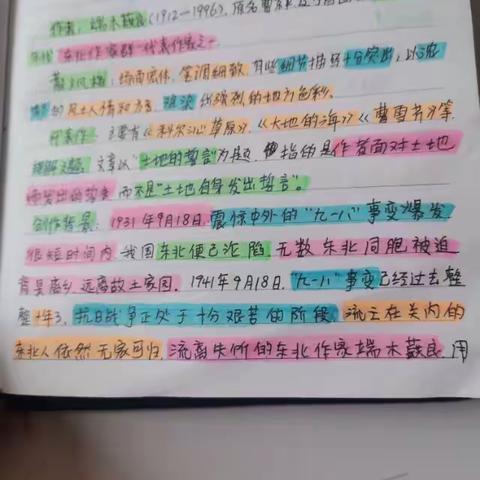 作者：端木蕻良(1912—1996)，原名曹
东北作家群代表作家之一。
散文风格：场面宏伟，笔调细致，有些细节描写十分突出，以浓
的风土人情和方言，渲染出强烈的地方色彩。
代表作：主要有《科尔沁旗草原》、《大地的海》《曹雪芹》等
题解文题：文章以"土地的誓言"为题，他指的是作者面对土地
而发出的誓言，而不是"土地自身发出誓言"。
创作背景：1931年9月18日，震惊中外的"九一八"事变爆发，
很短时间内，我国东北便已沦陷，无数东北同胞被迫
背井离乡，远离故土家园。1941年9月18日，"九一八"事变已经过去整
整十年了，抗日战争正处于十分艰苦的阶段，流亡在关内的
东北人依然无家可归，流离失所的东北作家端木蕻良，用